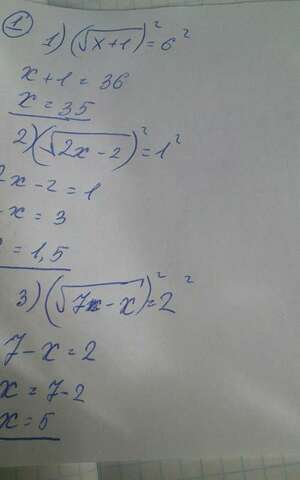 1
1) (√x+1)² = 6²
x+1 = 36
x = 35
2) (√2x-2)² = 1²
2x-2 = 1
x = 3
= 1,5
3) (√7-x)² = 2²
7-x = 2
x = 7-2
x = 5